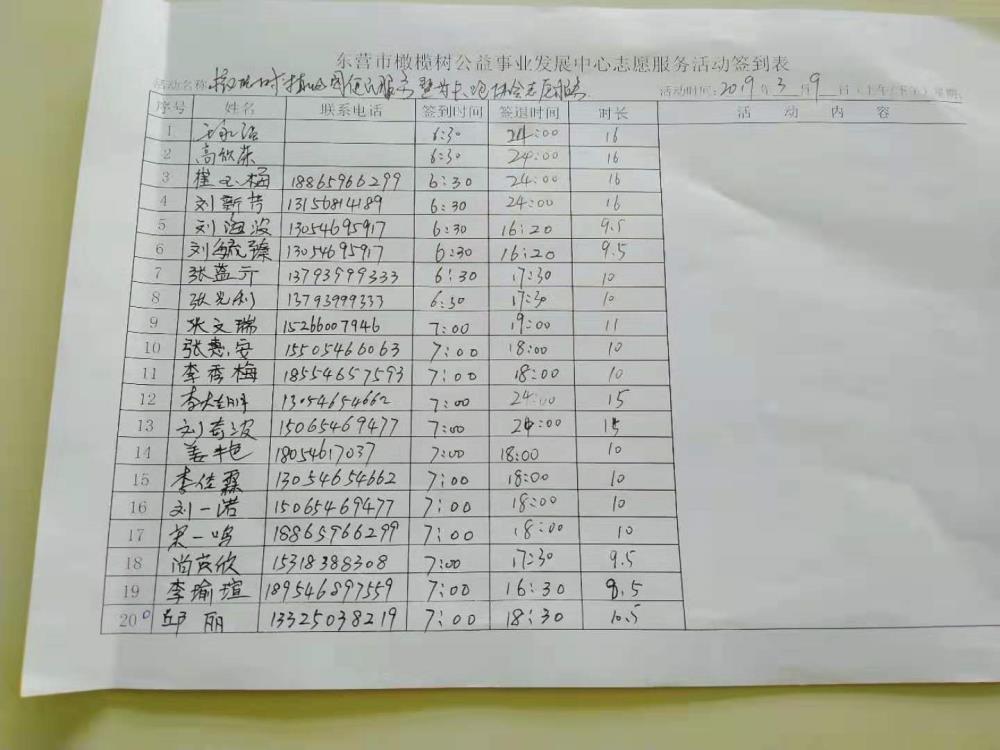 东营市橄榄树公益事业发展中心志愿服务活动签到表
活动名称 活动时间: 2019年3月9日(上午/下午)星期:
序号 姓名 联系电话 签到时间 签退时间 时长 活动内容
1 6:30 24:00 16
2 高欣东 6:30 24:00 16
3 崔玉梅 18865966299 6:30 24:00 16
4 刘新芳 13156814189 6:30 24:00 16
5 刘海波 13054695917 6:30 16:20 9.5
6 刘毓臻 13054695917 6:30 16:20 9.5
7 张蓝亓 13793999333 6:30 17:30 10
8 张光利 13793999333 6:30 17:30 10
9 张文瑞 15266007946 7:00 19:00 11
10 张惠安 15505466063 7:00 18:00 10
11 李秀梅 18554657593 7:00 18:00 10
12 13054654662 7:00 24:00 15
13 刘奇波 15065469477 7:00 24:00 15
14 姜 18054617037 7:00 18:00 10
15 李佳霖 13054654662 7:00 18:00 10
16 刘一诺 15065469477 7:00 18:00 10
17 宋一鸣 18865966299 7:00 18:00 10
18 尚芮欣 15318388308 7:00 17:30 9.5
19 李瑜瑄 189546897559 7:00 16:30 8.5
20 邱丽 13325038219 7:00 18:30 10.5